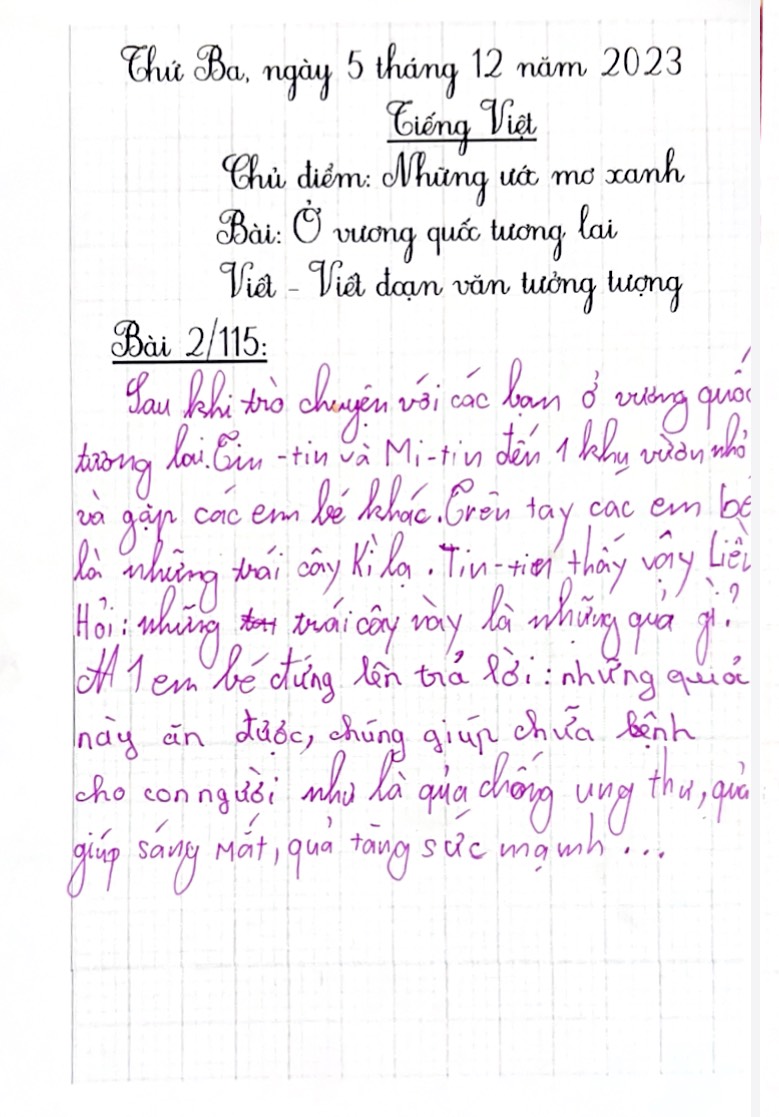 Thứ Ba, ngày 5 tháng 12 năm 2023
Tiếng Việt
Chủ điểm: Những ước mơ xanh
Bài: Ở vương quốc tương lai
Viết - Viết đoạn văn tưởng tượng
Bài 2/115:
Sau khi trò chuyện với các bạn ở vương quốc
tương lai. Tin-tin và Mi-tin đến 1 khu vườn nhỏ
và gặp các em bé khác. Trên tay các em bé
là những trái cây Kì lạ. Tin-tin thấy vậy liền
Hỏi: những trái cây này là những quả gì?
1 em bé đứng lên trả lời: những quả
này ăn được, chúng giúp chữa bệnh
cho con người như là qủa chống ung thư, quả
giúp sáng mắt, quả tăng sức mạnh...